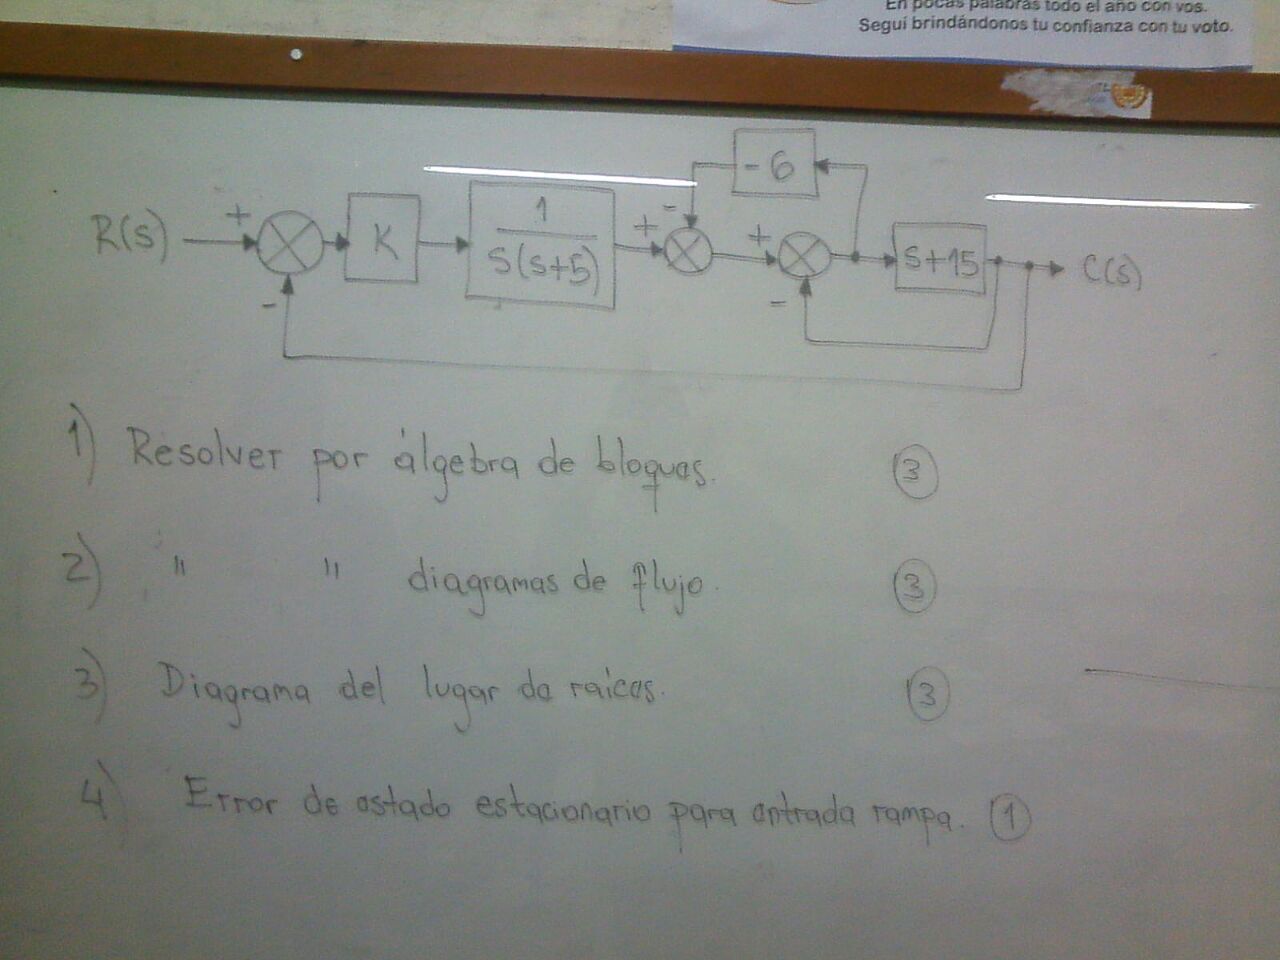 En pocas palabras todo el año con vos.
Seguí brindándonos tu confianza con tu voto.
- 6
R(s) + - K 1 / s(s+5) + - + - s+15 C(s)
1) Resolver por álgebra de bloques. 3
2) " " diagramas de flujo. 3
3) Diagrama del lugar de raíces. 3
4) Error de estado estacionario para entrada rampa. 1